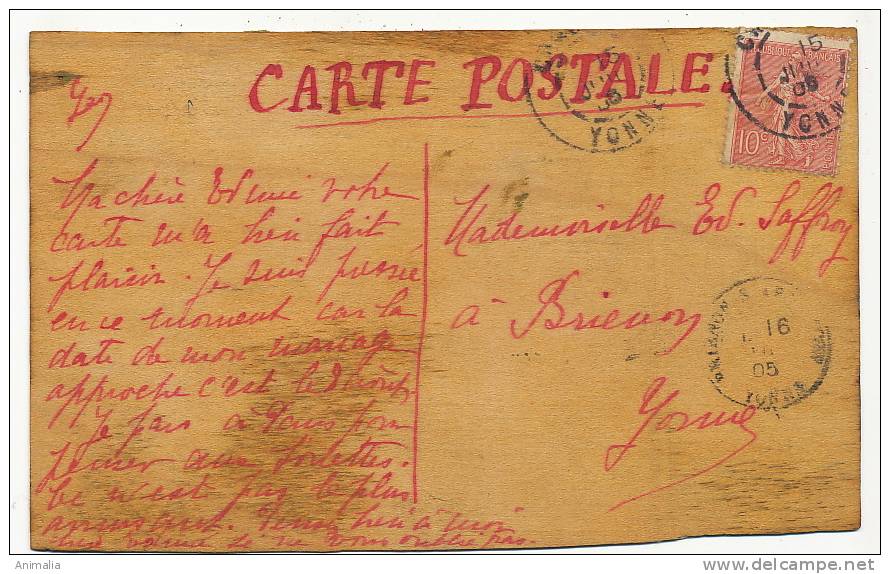 CARTE POSTALE.
REPUBLIQUE FRANÇAISE
10c
15
JUIL
05
YONNE
15
05
YONNE
Ma chère Edmée votre
carte m'a bien fait
plaisir. Je suis pressée
en ce moment car la
date de mon mariage
approche c'est le
Je pars à Paris pour
penser aux toilettes.
Ce n'est pas le plus
amusant. Pensez bien à moi
je ne vous oublie pas.
Mademoiselle Ed. Saffroy
à Brienon
Yonne
16
05
YONNE
Animalia
delcampe.net